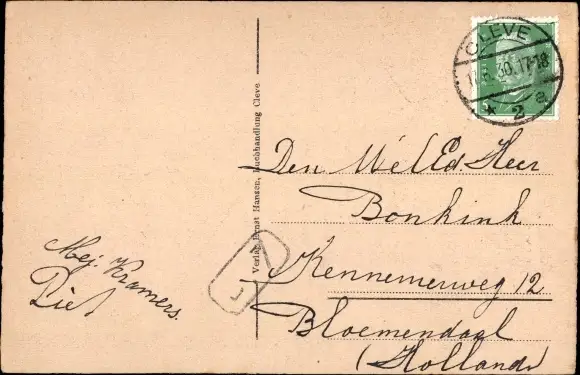 CLEVE
30.17-18
* 2 a
Den WelEd. Heer
Bonkink
Kennemerweg 12
Bloemendaal
(Holland)
Mej. Kramers.
Piet
Verlag Ernst Hansen, Buchhandlung Cleve